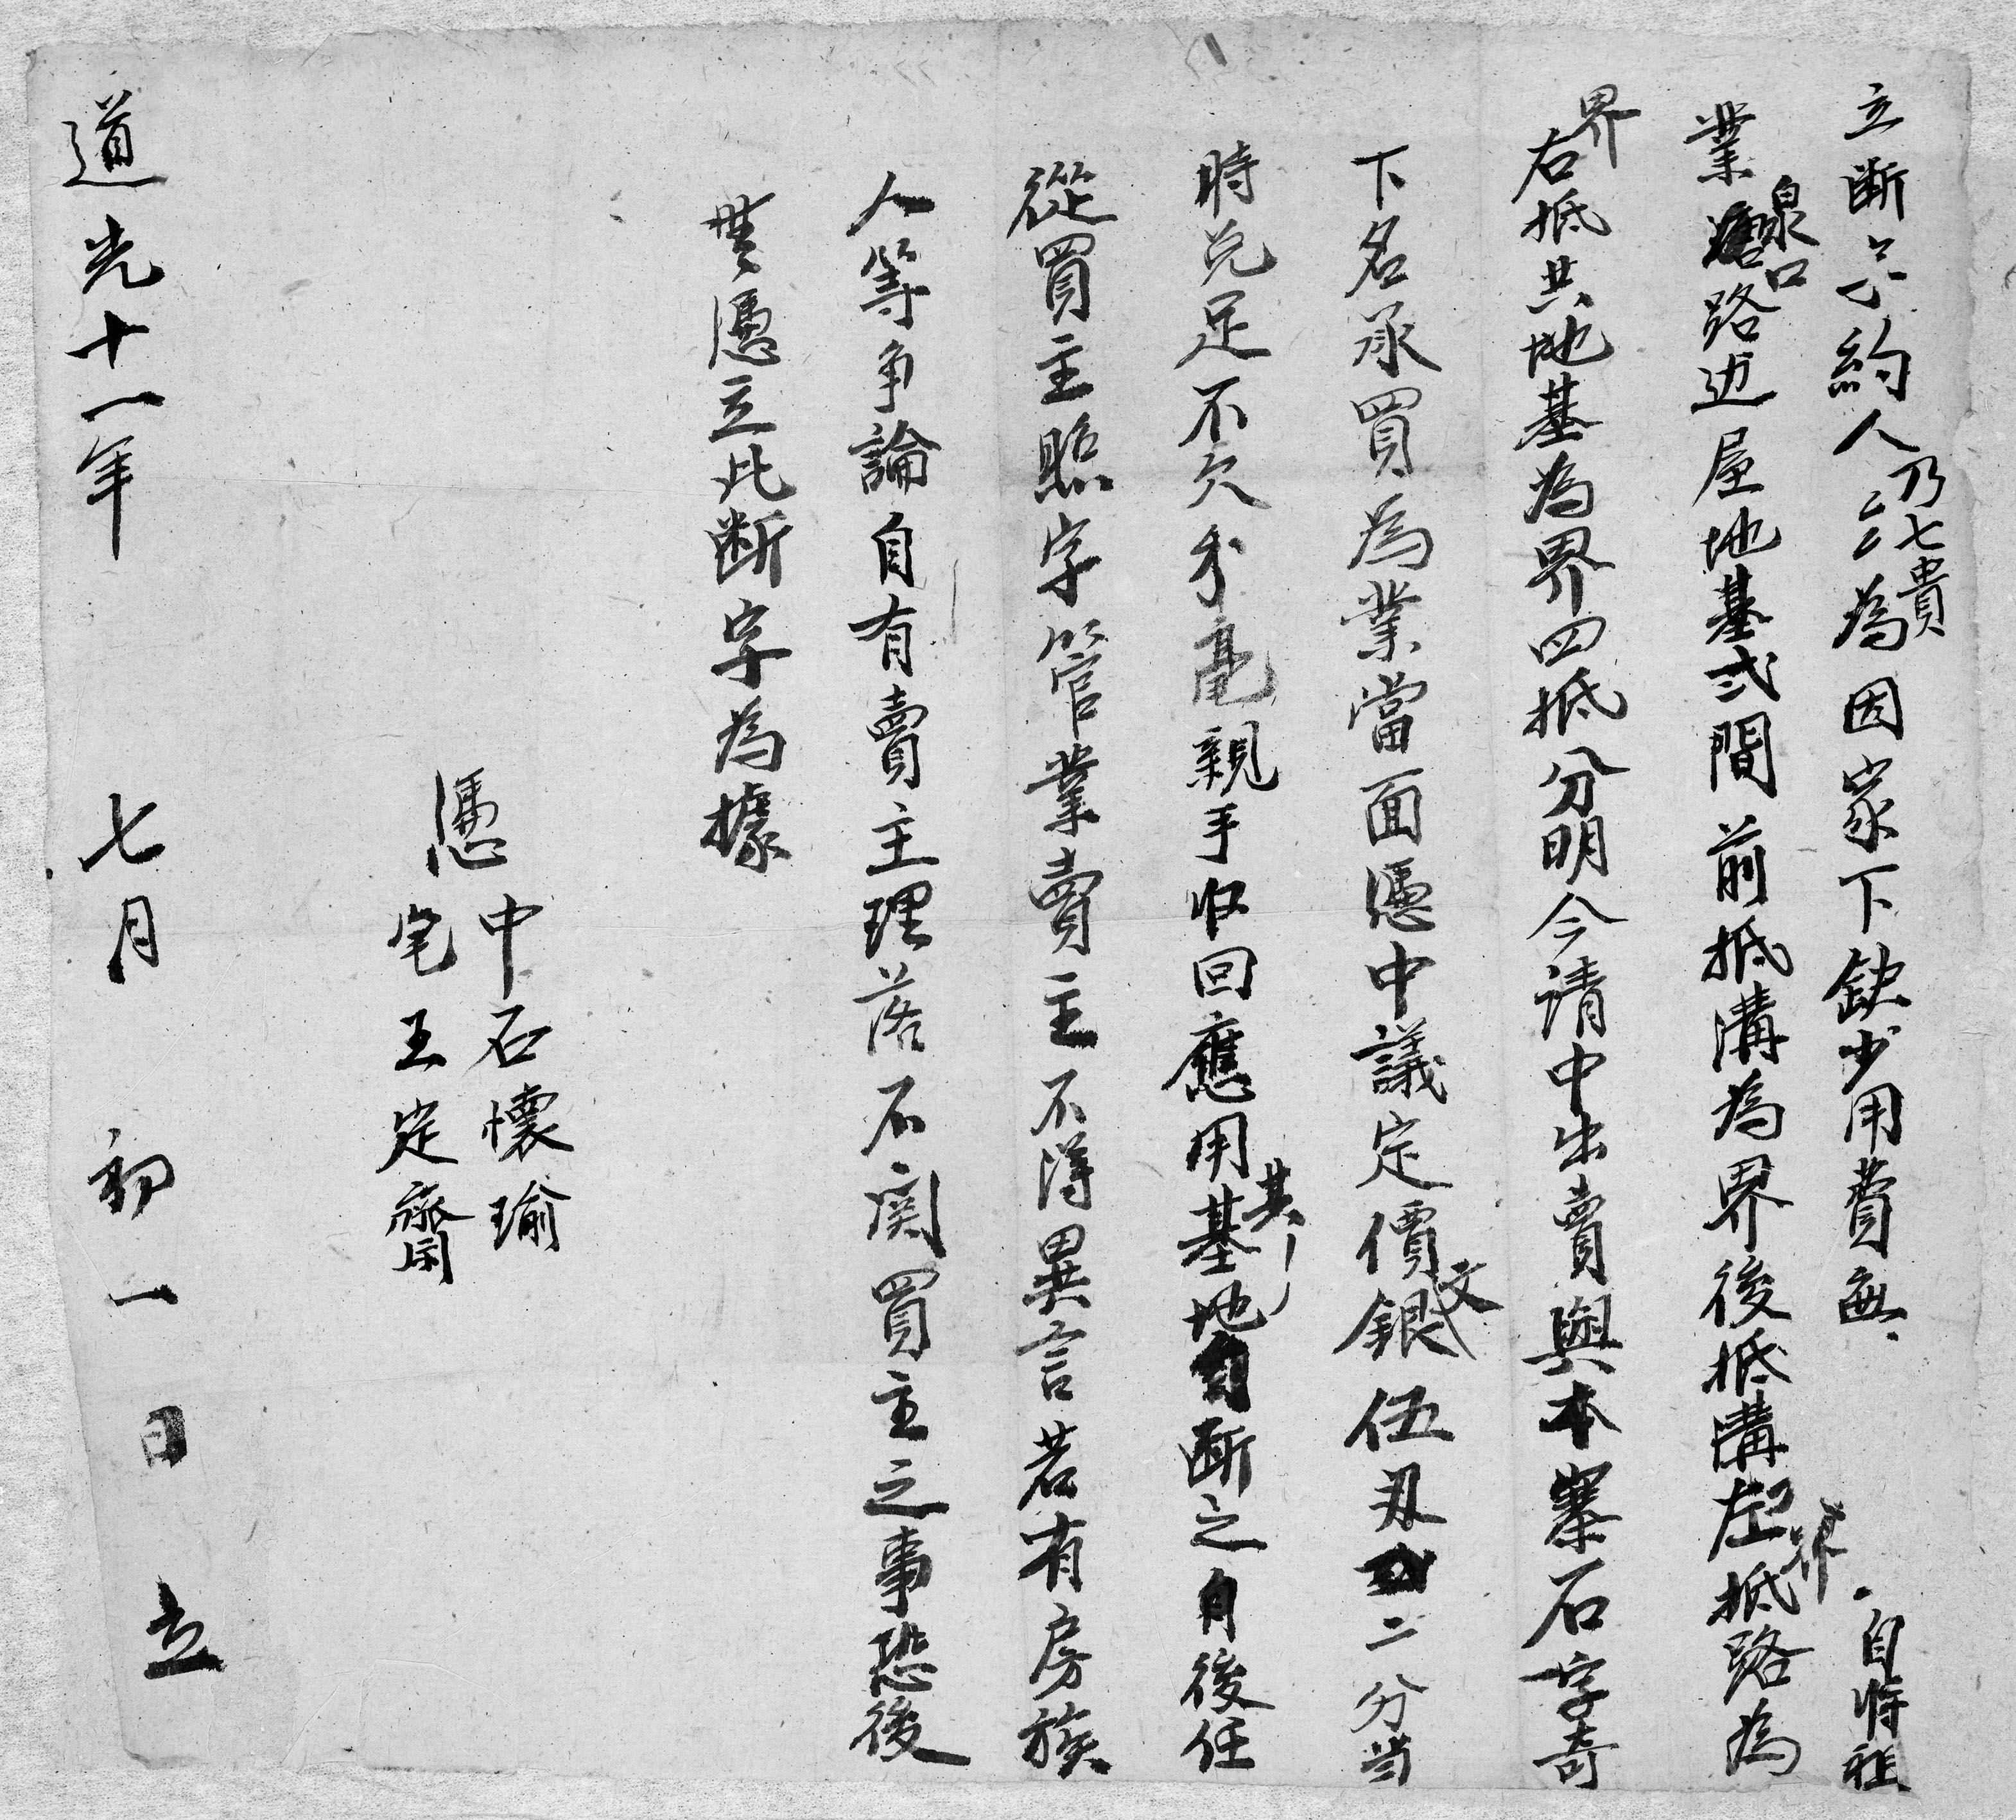 立断字約人乃七貴為因家下缺少用費無自將祖
業泉口路边屋地基弍間前抵溝為界後抵溝左抵路為
界右抵共地基為界四抵分明今请中出賣與本寨石字奇
下名承買為業當面憑中議定價文銀伍 二分当
時兑足不欠分毫親手收回應用其基地自断之自後任
從買主照字管業賣主不得異言若有房族
人等争論自有賣主理落不関買主之事恐後
無憑立此断字為據
憑中石懷瑜
宅王定齋
道光十一年七月初一日立